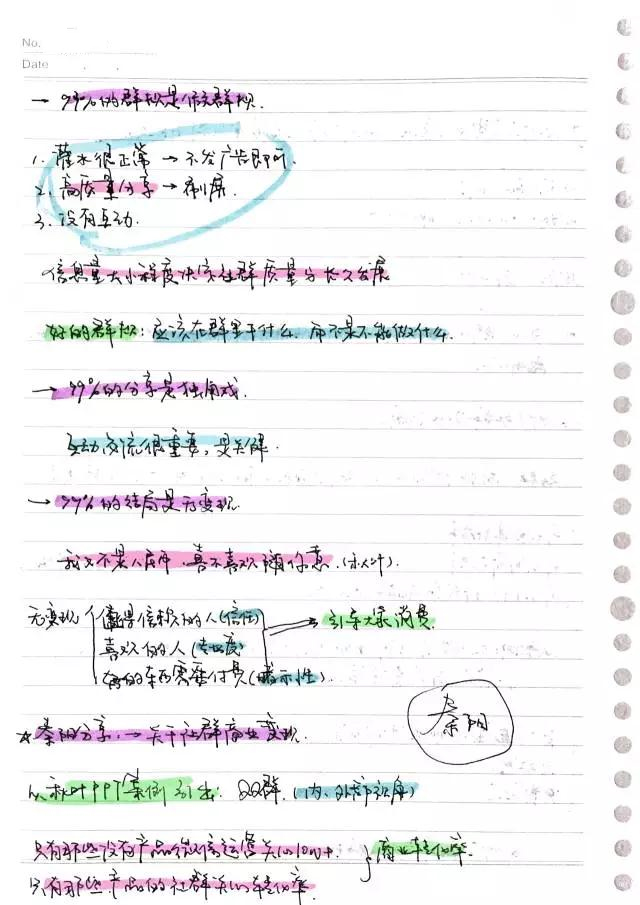 No.
Date
→ 99%的群规是伪群规.
1. 灌水很正常 → 不发广告即可.
2. 高质量分享 → 刷屏.
3. 没有互动.
信息量大小程度决定社群质量与长久发展
好的群规：应该在群里干什么，而不是不能做什么.
→ 99%的分享是独角戏.
互动交流很重要，是关键.
→ 99%的结局是无变现.
我又不是人民币，喜不喜欢随你意.(秋叶).
无变现 值得信赖的人(信任)
喜欢的人(专业度)
好的东西需要付费(暗示性).
→ 引导大家消费.
秦阳
☆秦阳分享，→ 关于社群商业变现.
1. 秋叶PPT案例引出：QQ群.(内、外部社群)
只有那些没有产品的微信运营关心100W+.
只有那些产品的社群关心转化率.
} 商业转化率.